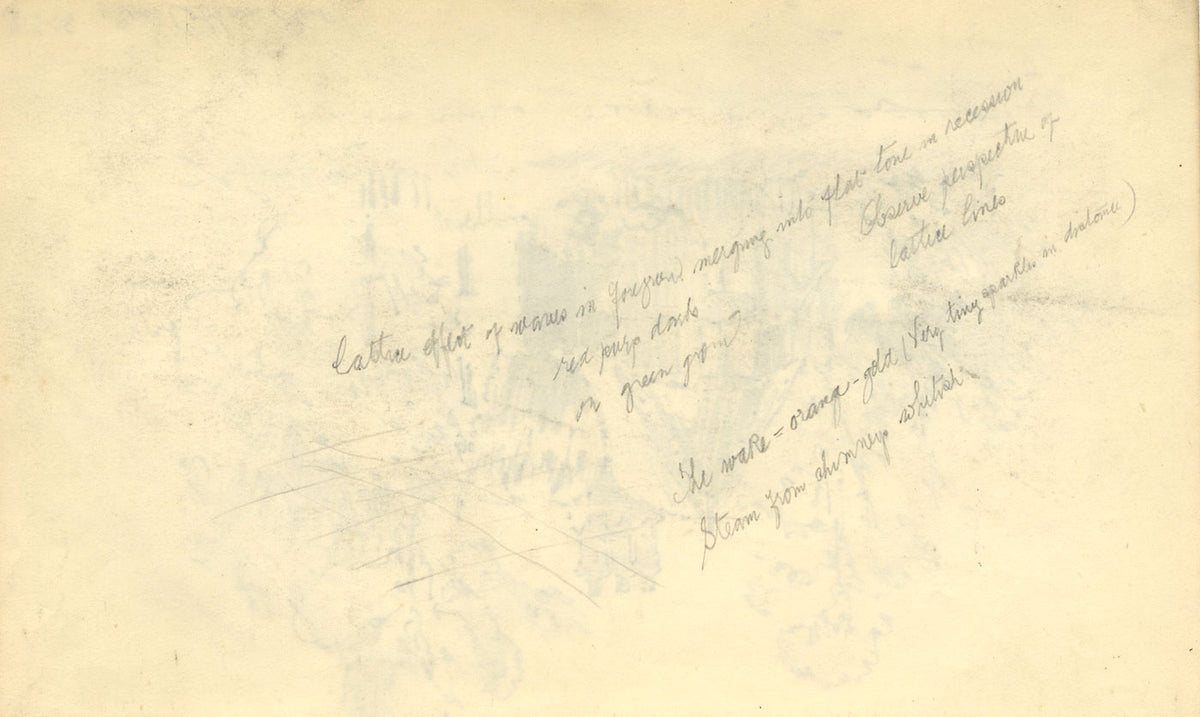 Lattice effect of waves in foregrou merging into flat tone in recession
Observe perspective of
lattice lines
red purp darks
on green groun
The wake = orange-gold (Very tiny sparkles in distance)
Steam from chimneys whitish